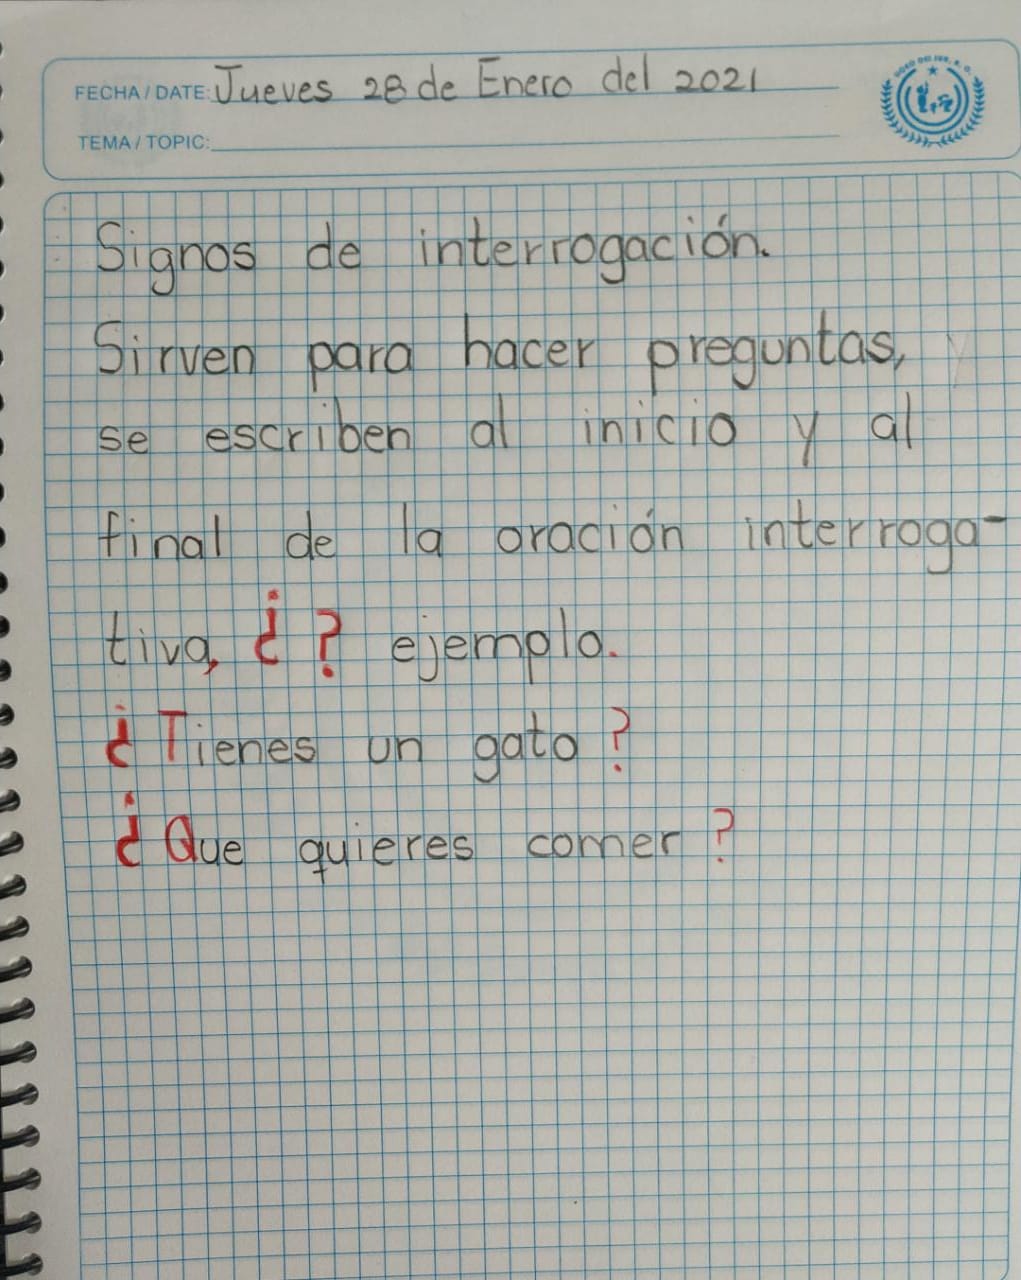 FECHA / DATE: Jueves 28 de Enero del 2021
TEMA / TOPIC:
Signos de interrogación.
Sirven para hacer preguntas, y
se escriben al inicio y al
final de la oración interroga-
tiva, ¿? ejemplo.
¿Tienes un gato?
¿Que quieres comer?